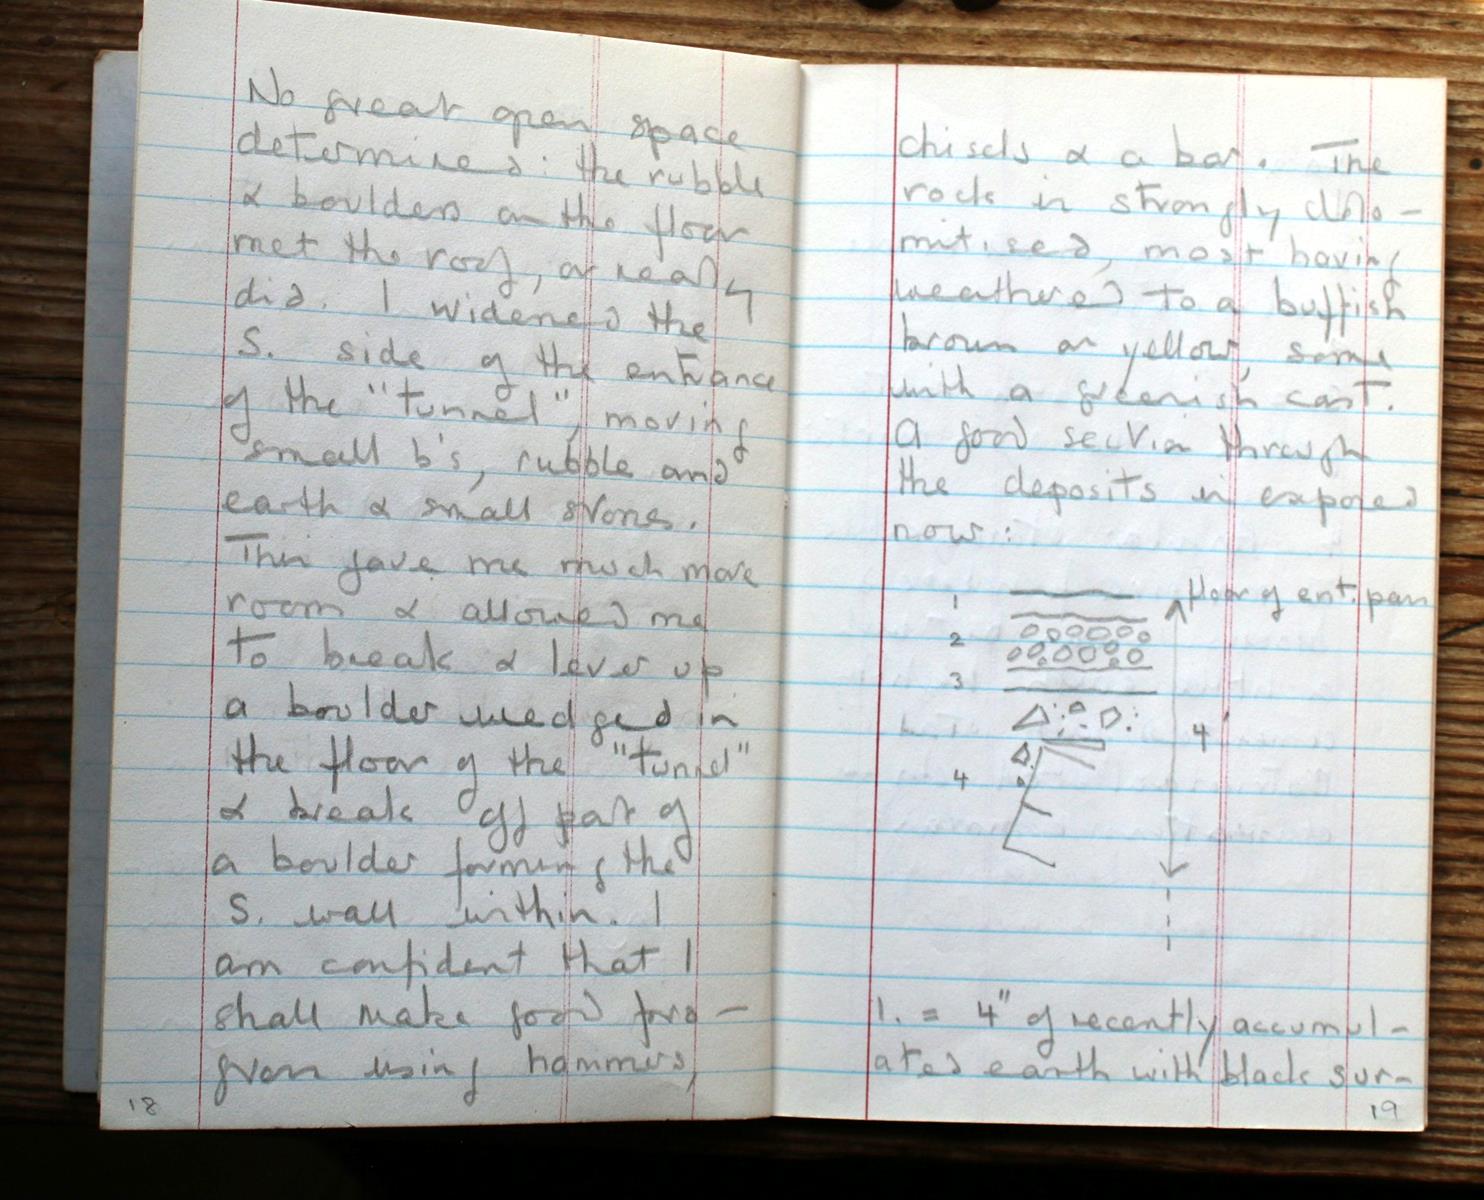 No great open space
determined: the rubble
& boulders on the floor
met the roof, or nearly
did. I widened the
S. side of the entrance
of the "tunnel", moving
small b's, rubble and
earth & small stones.
This gave me much more
room & allowed me
to break & lever up
a boulder wedged in
the floor of the "tunnel"
& break off part of
a boulder forming the
S. wall within. I
am confident that I
shall make good pro-
gress using hammers,
18
chisels & a bar. The
rock is strongly dolo-
mitised, most having
weathered to a buffish
brown or yellow, some
with a greenish cast.
A good section through
the deposits is exposed
now:
1
floor of ent. pass
2
3
4'
4
1. = 4" of recently accumul-
ated earth with black sur-
19